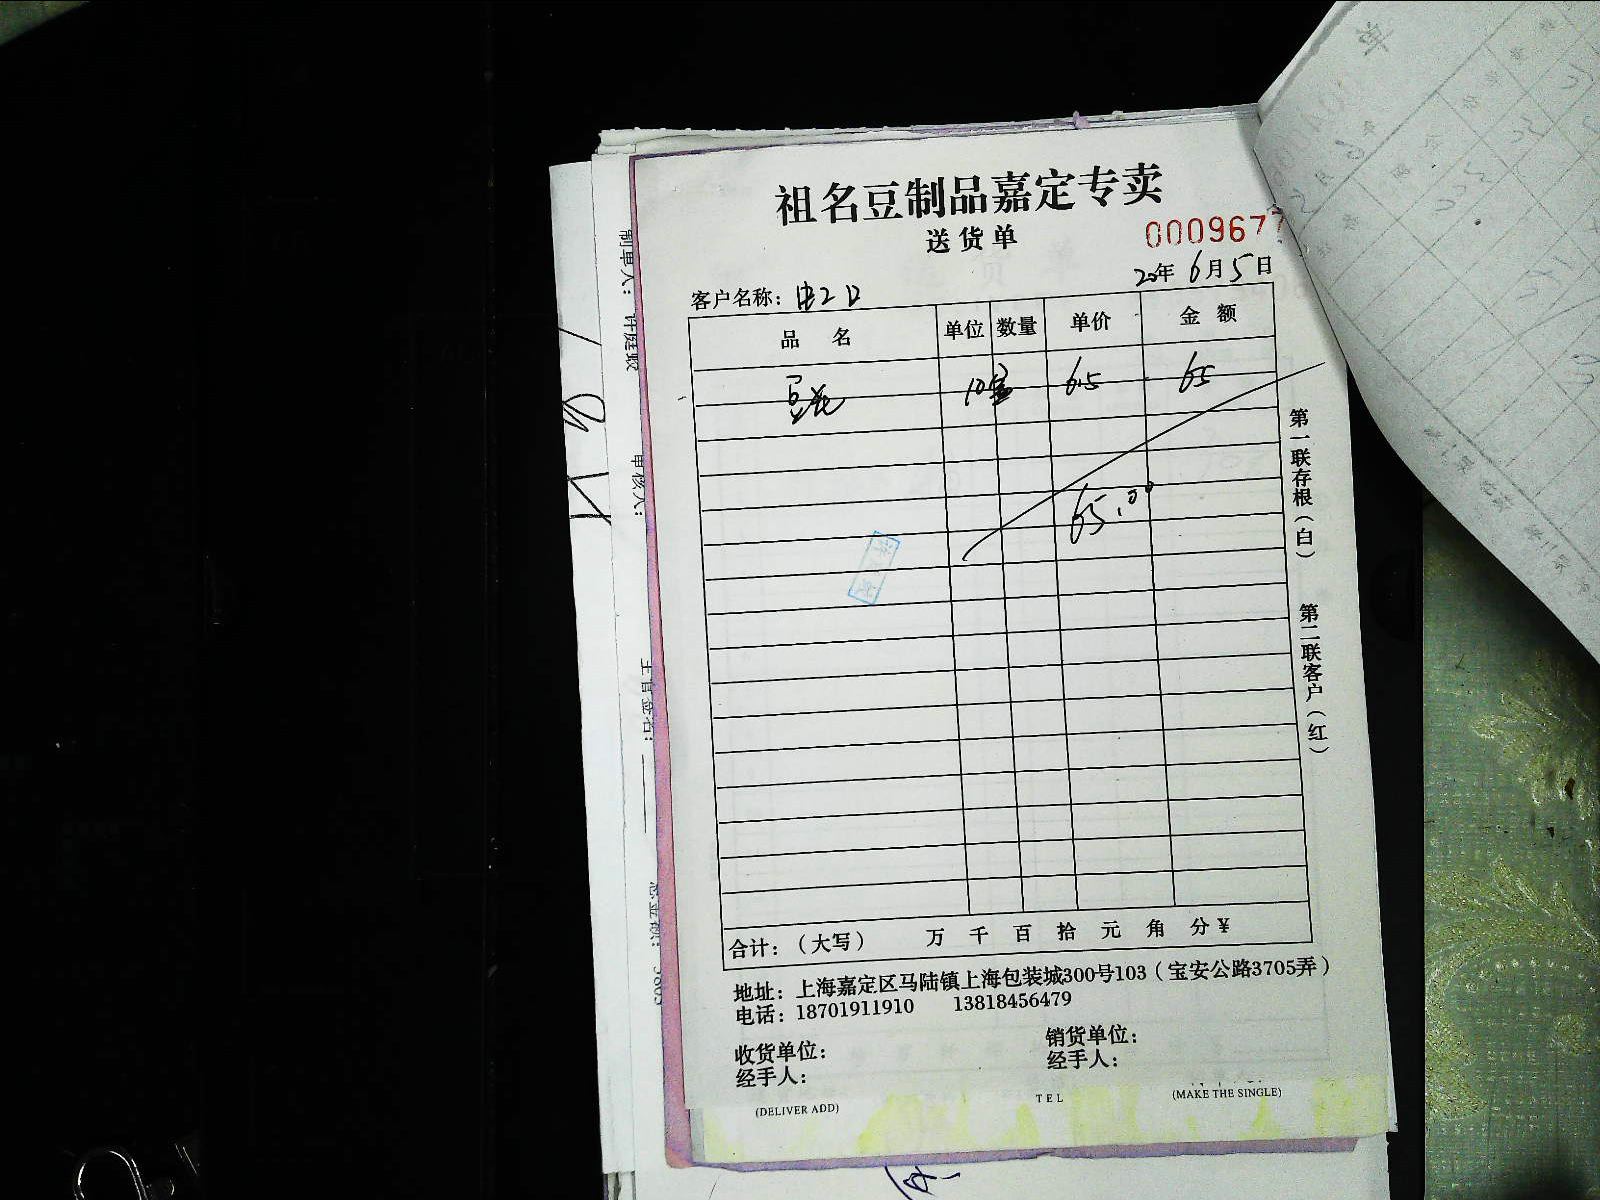 祖名豆制品嘉定专卖
送货单
000967
20年6月5日
客户名称：
品 名 单位 数量 单价 金 额
豆花 10盒 6.5 65
65.00
合计：（大写） 万 千 百 拾 元 角 分 ¥
地址：上海嘉定区马陆镇上海包装城300号103（宝安公路3705弄）
电话：18701911910 13818456479
收货单位： 销货单位：
经手人： 经手人：
第一联存根（白） 第二联客户（红）
(DELIVER ADD) TEL (MAKE THE SINGLE)
制单人：许廷
审核人：
主管签名：